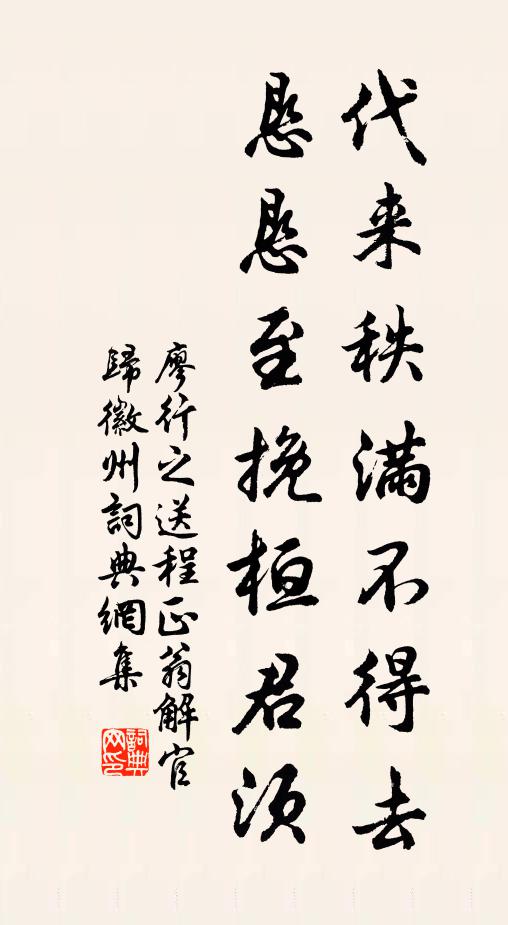 代来秩滿不得去
恳恳至挽桓君须
廖行之送程正翁解官
歸徽州詞典網集
詞典网印